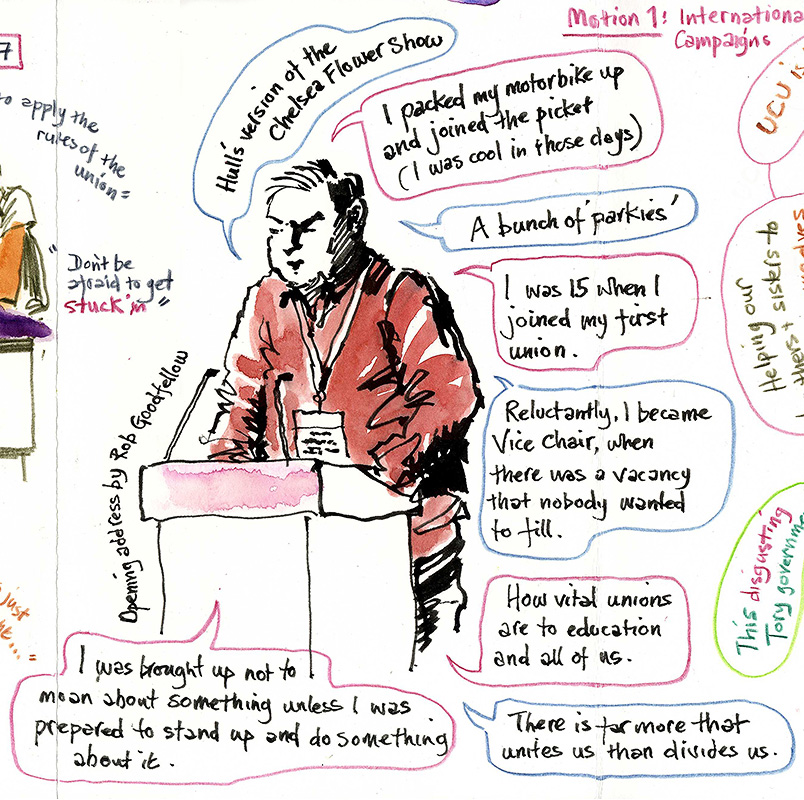 7
to apply the
rules of the
union =
"Don't be
afraid to get
stuck in"
just
Hull's version of the
Chelsea Flower Show
I packed my motorbike up
and joined the picket
(I was cool in those days)
A bunch of 'parkies'
I was 15 when I
joined my first
union.
Reluctantly, I became
Vice Chair, when
there was a vacancy
that nobody wanted
to fill.
How vital unions
are to education
and all of us.
There is far more that
unites us than divides us.
I was brought up not to
moan about something unless I was
prepared to stand up and do something
about it.
Opening address by Rob Goodfellow
Motion 1: Internationa
Campaigns
UCU is
Helping our
sisters to
This disgusting
Tory governme